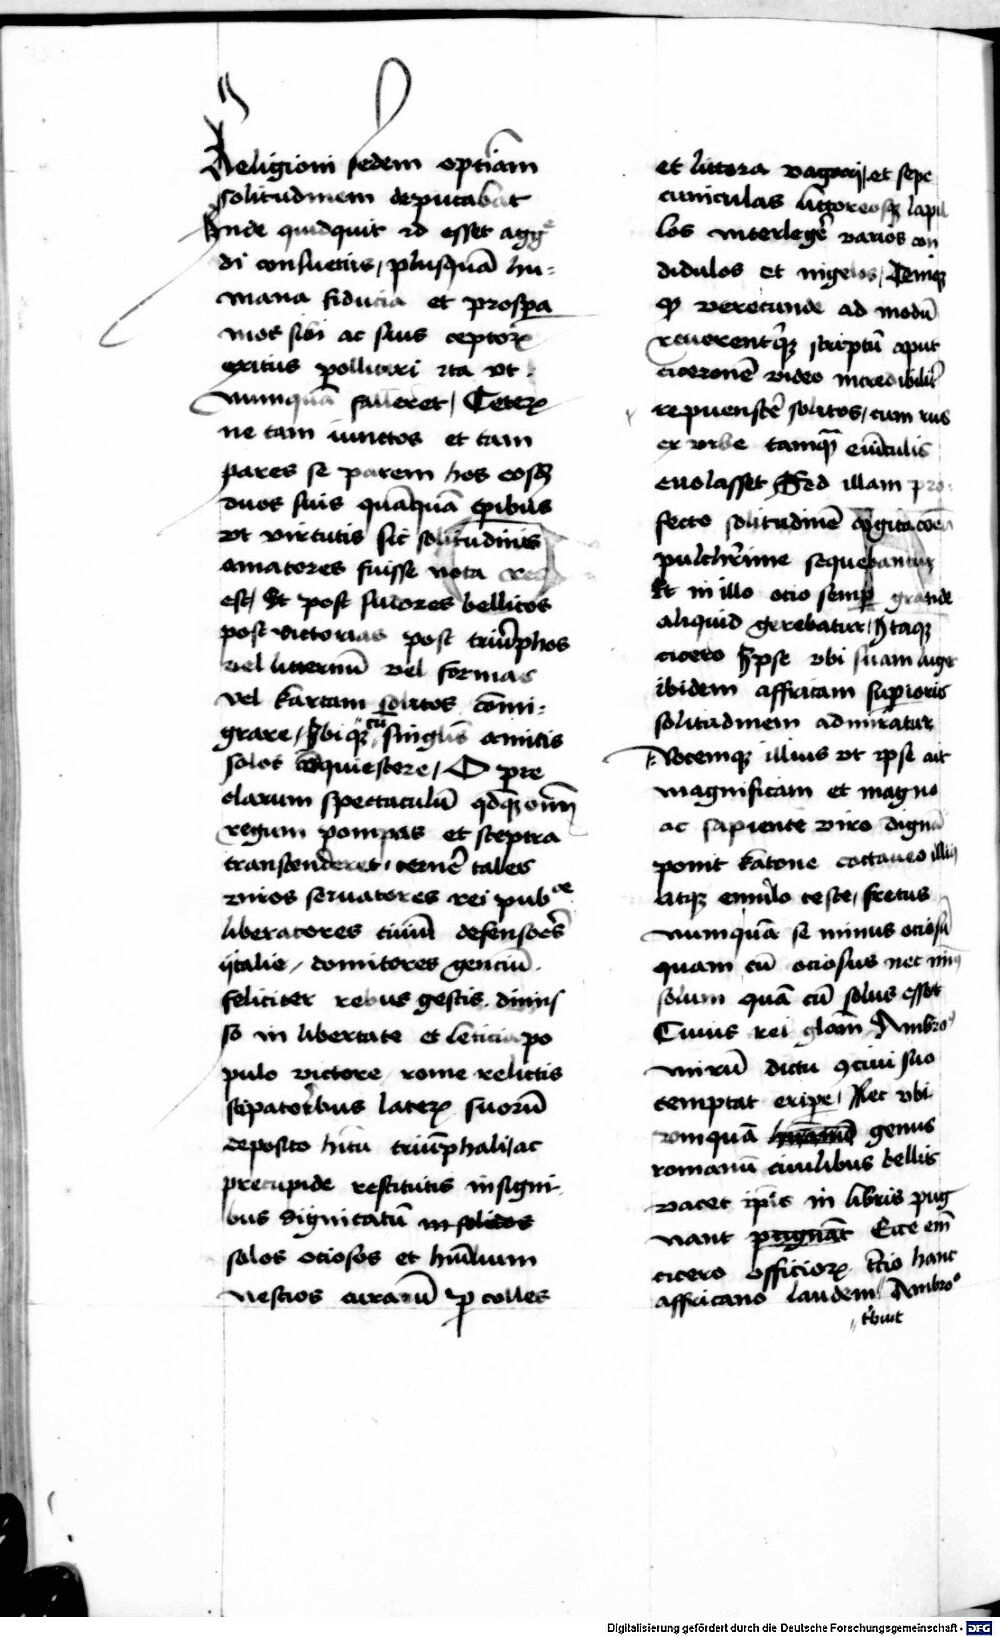 Religioni sedem optīam
solitudinem deputabat
Inde quidquit id esset agge
di consuetus / plusquā hu-
mana fiducia et prospa
mos sibi ac suis ceptoꝝ
exitus polliceri ita vt
numquā falleret / Ceteꝝ
ne tam iunctos et tam
pares se parem hos eosꝗ
duos suis quāquā tpibus
vt virtutis sic solitudinis
amatores fuisse nota res
est / Et post sudores bellicos
post victorias post triūphos
vel litternū vel formas
vel kartam solitos cōmi-
grare / Ibiqꝫ cū singlis amicis
solos cōquiescere / O pre
clarum spectaculū qdqꝫ omm̄
regum pompas et sceptra
transcenderet / cernē tales
viros seruatores rei pubce
liberatores ciuiū defensores
ytalie / domitores genciū
feliciter rebus gestis dimis
so in libertate et leticia po
pulo victore rome relictis
stipatoribus lateꝝ suorū
deposito hītu triūphali / ac
precupide restitutis insigni
bus dignitatū in solitos
solos ociosos et
nescios curarū ꝑ colles
et littora vagari / et sepe
cuniculas littoreosqꝫ lapil
los interlegē varios con
didulos et nigelos / Deniqꝫ
ꝙ verecunde ad modū
reuorentqꝫ scriptū aput
ciceronē video incredibilit
repuerascē solitos / cum rus
ex vrbe tamqꝫ e vīculis
euolasset Sed illam pro
fecto solitudinē cogitacōes
pulchrīme sequebantur
Et in illo ocio semꝑ grande
aliquid gerebatur / Itaqꝫ
cicero Ipse vbi suam auget
ibidem affricam superioris
solitudinem admiratur
Vocemqꝫ illius vt ipse ait
magnificam et magno
ac sapiente viro dignā
ponit katone coetaneo illiꝰ
atqꝫ emulo teste / fretus
numquā se minus ociosū
quam cū ociosus nec minꝰ
solum quā cū solus esset
Cuius rei gloām Ambroꝰ
mirū dictu ꝯciui suo
temptat eriꝑe / Nec vbi
vmquā genus
romanū ciuilibus bellis
vacet ipīs in libris pug
nant pugnāt Ecce em̄
cicero officioꝝ tcio hanc
affricano laudem / Ambroꝰ
tbuit
Digitalisierung gefördert durch die Deutsche Forschungsgemeinschaft - DFG